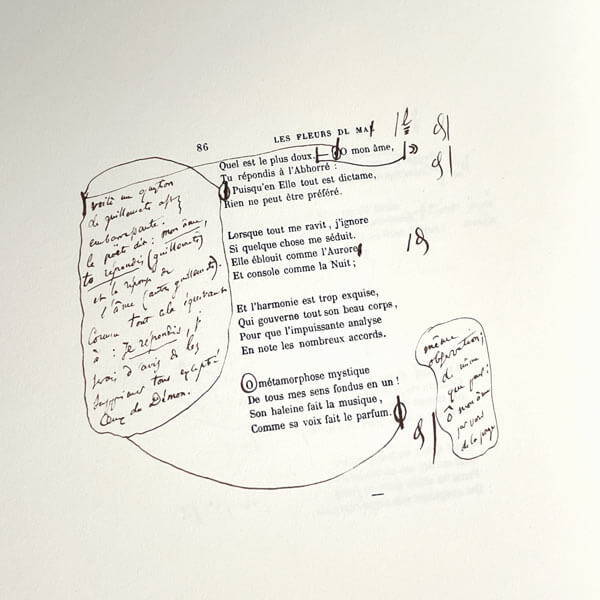 86 LES FLEURS DU MAL
Quel est le plus doux. — O mon âme, »
Tu répondis à l'Abhorré :
Puisqu'en Elle tout est dictame,
Rien ne peut être préféré.
Lorsque tout me ravit, j'ignore
Si quelque chose me séduit.
Elle éblouit comme l'Aurore
Et console comme la Nuit ;
Et l'harmonie est trop exquise,
Qui gouverne tout son beau corps,
Pour que l'impuissante analyse
En note les nombreux accords.
O métamorphose mystique
De tous mes sens fondus en un !
Son haleine fait la musique,
Comme sa voix fait le parfum.
voilà une question
de guillemets assez
embarrassante.
le poëte dit : mon âme,
tu répondis (guillemets)
et la réponse de
l'âme (autre guillemets).
Comme tout cela équivaut
à : Je répondis, je
serais d'avis de les
supprimer tous excepté
Ceux du Démon.
même
observation,
de même
que pour :
Ô mon âme
1er vers
de la page